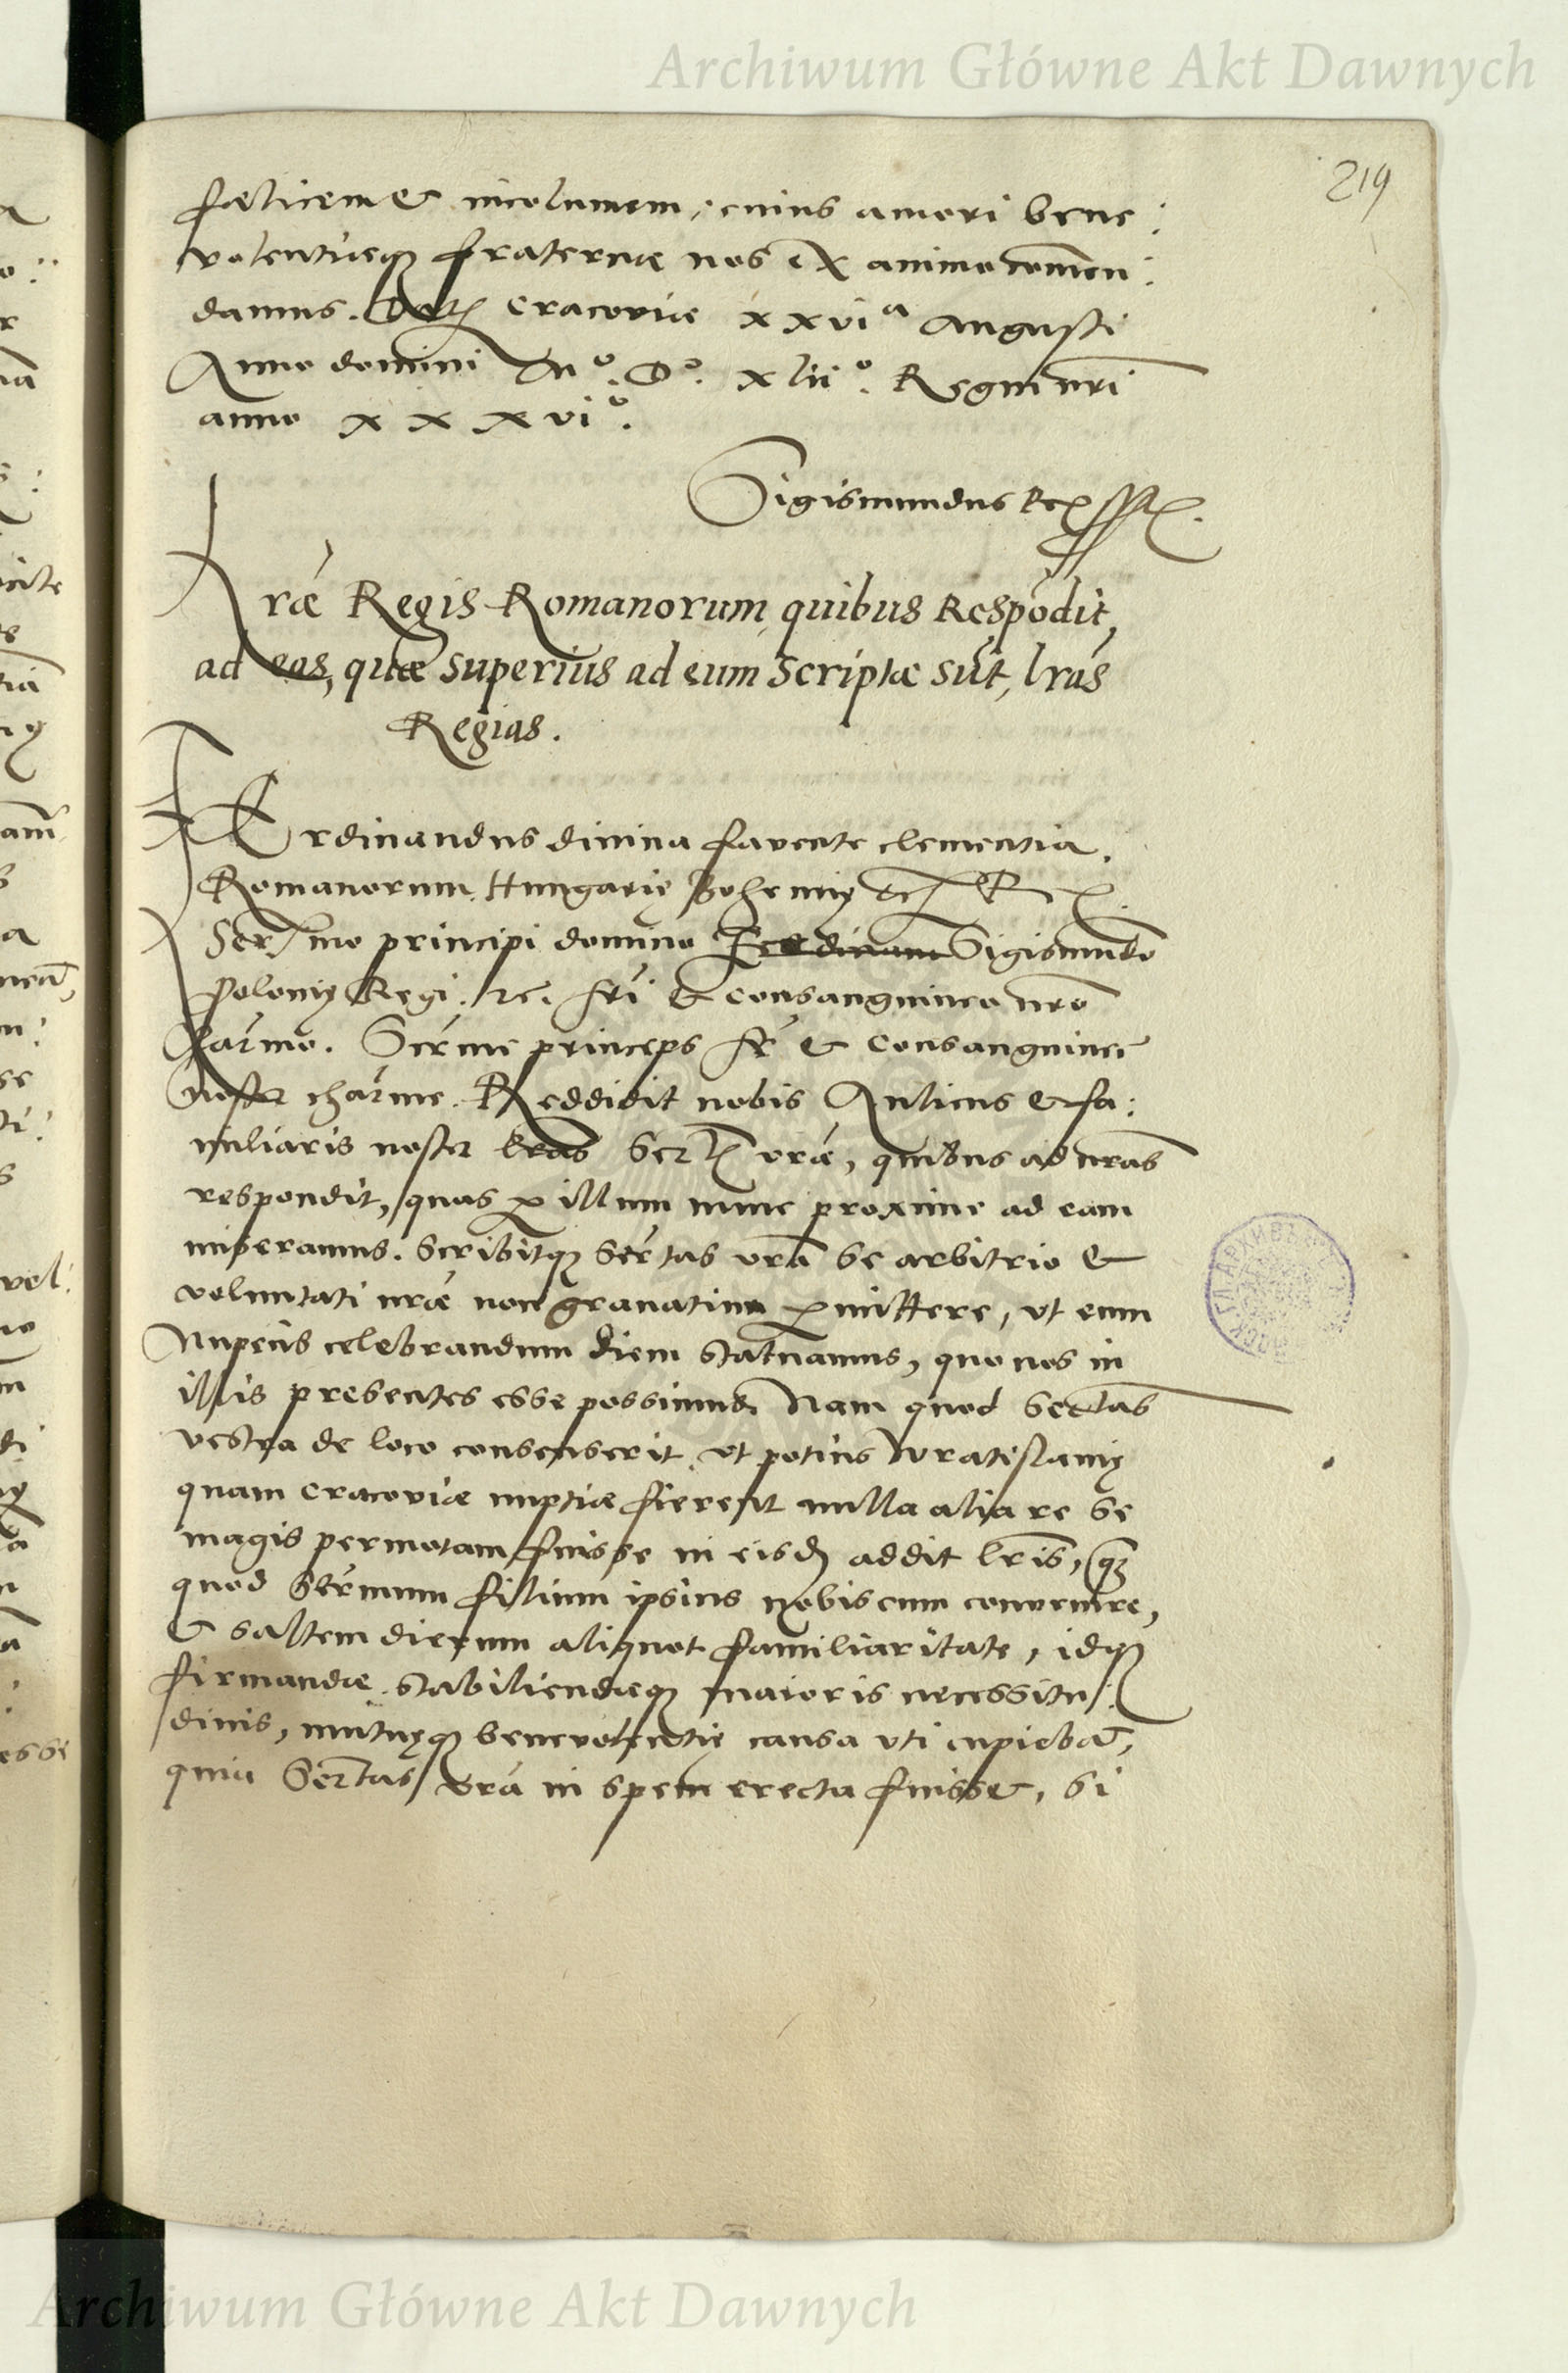 Archiwum Główne Akt Dawnych
219
fœlicem et incolumem, cuius amori bene:
volentiæq; fraternæ nos ex animo comen:
damus. Dat; Cracoviæ xxvi a Augusti
Anno domini Mº. Dº. xlii º. Regni nri
anno xxxvi º.
Sigismundus Rex sst.
Lræ Regis Romanorum, quibus Respōdit,
ad eas, quæ superius ad eum Scriptæ sūt, lrás
Regias.
FErdinandus divina favente clementia.
Romanorum. Hungarię Bohemię etc Rex.
Sermo principi domino Ferdinan Sigismūdo
Polonię Regi. etc. fri et consanguineo nro
Carmo. Serme princeps fr et Consanguinee
noster charme. Reddidit nobis Aulicus et fa:
miliaris noster lras Sertis vræ, quibus ad nras
respondit, quas p illum nunc proxime ad eam
miseramus. Scribitq; Sertas vra se arbitrio et
voluntati nræ non gravatim pmittere, ut eum
Nuptiis celebrandum diem statuamus, quo nos in
illis presentes esse possimus. Nam quod Sertas
vestra de loco consenserit, ut potius Wratislavię
quam Cracoviæ nuptiæ fierent nulla alia re se
magis permotam fuisse in eisd addit lris, q;
quod Sermum filium ipsius nobiscum convenire,
et saltem dierum aliquot familiaritate, idq;
firmandæ stabiliendæq; maioris necessitu:
dinis, mutuęq; benevolentię causa uti cupiebat,
quia Sertas vra in spem erecta fuisset, si
Archiwum Główne Akt Dawnych